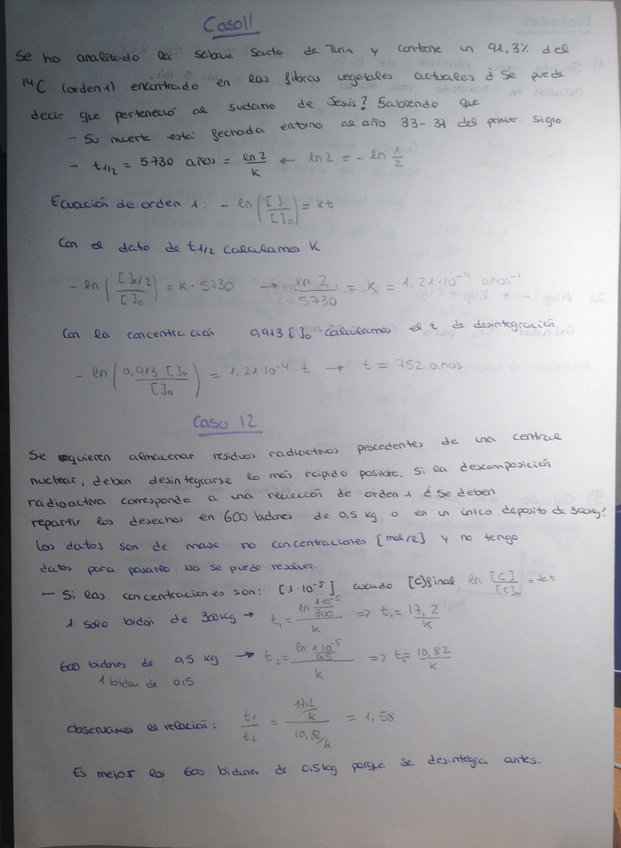 Caso 11
Se ha analizado la sabana santa de Turin y contiene un 91,3% del
¹⁴C (orden 1) encontrado en las fibras vegetales actuales ¿Se puede
decir que perteneció al sudario de Jesús? Sabiendo que
- Su muerte está fechada entorno al año 33-37 del primer siglo
- t1/2 = 5730 años = ln 2 / k ← ln 2 = - ln 1/2
Ecuación de orden 1: - ln ( [ ] / [ ]₀ ) = kt
Con el dato de t1/2 calculamos K
- ln ( [ ]₀/2 / [ ]₀ ) = k · 5730 → ln 2 / 5730 = k = 1,21·10⁻⁴ años⁻¹
Con la concentración 0,913 [ ]₀ calculamos el t de desintegración
- ln ( 0,913 [ ]₀ / [ ]₀ ) = 1,21·10⁻⁴ · t → t = 752 años
Caso 12
Se quieren almacenar residuos radiactivos procedentes de una central
nuclear, deben desintegrarse lo más rápido posible. Si la descomposición
radioactiva corresponde a una reacción de orden 1 ¿Se deben
repartir los desechos en 600 bidones de 0,5 kg o en un único deposito de 300kg?
Los datos son de masa no concentraciones [mol/l] y no tengo
datos para pasarlo. No se puede resolver.
- Si las concentraciones son: [1·10⁻⁵] cuando [C]final ln [C] / [C]₀ = kt
1 solo bidón de 300kg → t₁ = ln 1·10⁻⁵/300 / k => t₁ = 17,2 / k
600 bidones de 0,5 kg → t₂ = ln 1·10⁻⁵/0,5 / k => t₂ = 10,82 / k
1 bidon de 0,5
Observamos la relación: t₁ / t₂ = 17,2/k / 10,82/k = 1,58
Es mejor los 600 bidones de 0,5kg porque se desintegra antes.